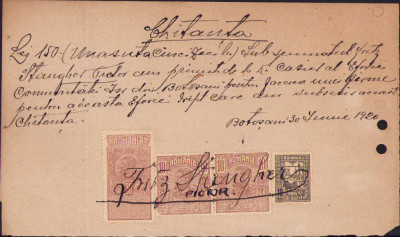 Chitanta
Lei 150 (Una suta cinci zeci lei) Subsemnatul Fritz
Stangher Pictor am primit de la Dl Casier al Eforiei
Comunitătii din Botosani pentru facerea unei
pentru aceasta Eforei drept care am subscris aceasta
Chitanta.
Botosani 30 Iunie 1920
ROMANIA ROMANIA
Fritz Stangher
PICTOR